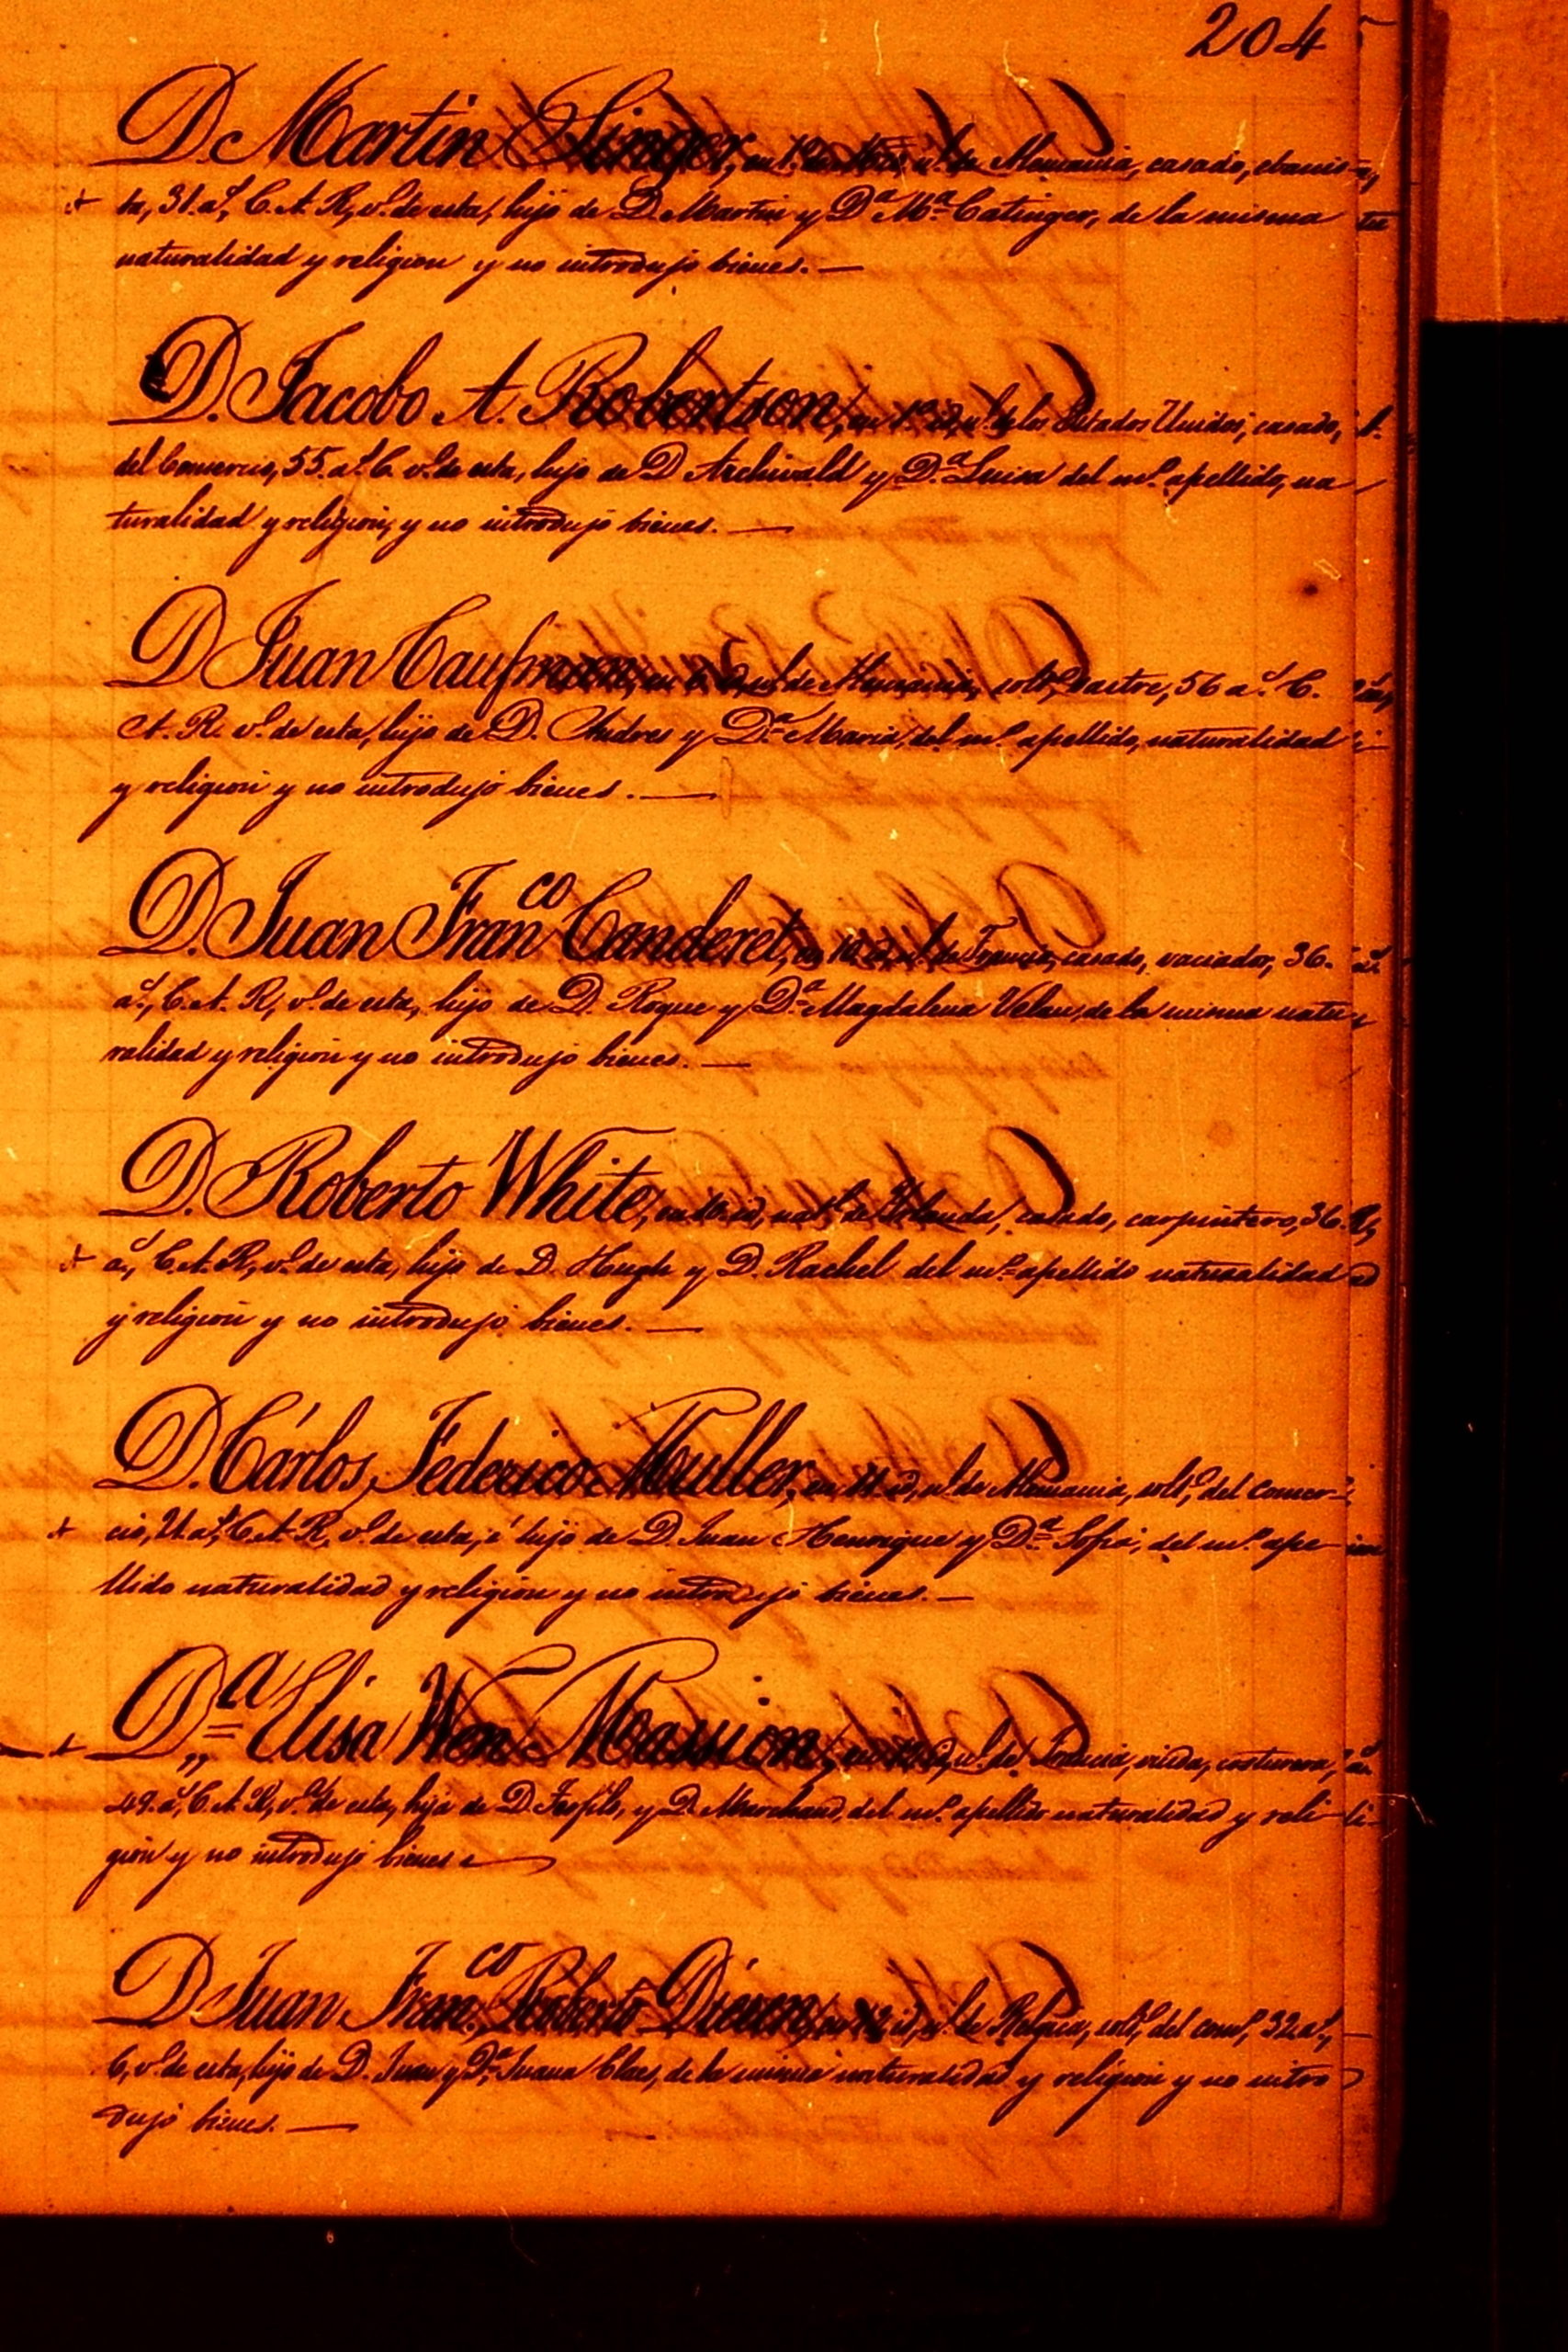 204
D. Martin Singer, en de Alemania, casado, ebanis-
ta, 31. a.s, C. A. R, v.o de esta, hijo de D. Martin y D.a M.a Catinger, de la misma
naturalidad y religion y no introdujo bienes. —
D. Jacobo A. Robertson, en n.l de los Estados Unidos, casado,
del Comercio, 55. a.s C. v.o de esta, hijo de D. Archivald y D.a Luisa del m.o apellido, na
turalidad y religion, y no introdujo bienes. —
D. Juan Caufmen, en n.l de Alemania, solt.o, Sastre, 56 a.s C.
A. R. v.o de esta, hijo de D. Andres y D.a Maria, del m.o apellido, naturalidad
y religion y no introdujo bienes. —
D. Juan Fran.co Canderet, en 10 id, n.l de Francia, casado, vaciador, 36.
a.s, C. A. R, v.o de esta, hijo de D. Roque y D.a Magdalena Velau, de la misma natu
ralidad y religion y no introdujo bienes. —
D. Roberto White, en 10 id, nat.l de Irlanda, casado, carpintero, 36.
a.s, C. A. R, v.o de esta, hijo de D. Hugh y D. Rachel del m.o apellido naturalidad
y religion y no introdujo bienes. —
D. Cárlos Federico Muller, en 11 id, n.l de Alemania, solt.o, del comer-
cio, 21 a.s, C. A. R, v.o de esta, é hijo de D. Juan Henrique y D.a Sofia, del m.o ape-
llido naturalidad y religion y no introdujo bienes. —
D.a Elisa Wen Massion, en id, n.l de Francia, viuda, costurera,
49. a.s, C. A. R, v.o de esta, hija de D. Teofilo, y D. Marchand, del m.o apellido naturalidad y reli-
gion y no introdujo bienes —
D. Juan Fran.co Roberto Dieren, en id, n.l de Belgica, solt.o, del com.o, 32 a.s,
C, v.o de esta, hijo de D. Juan y D.a Juana Claes, de la misma naturalidad y religion y no intro
dujo bienes. —